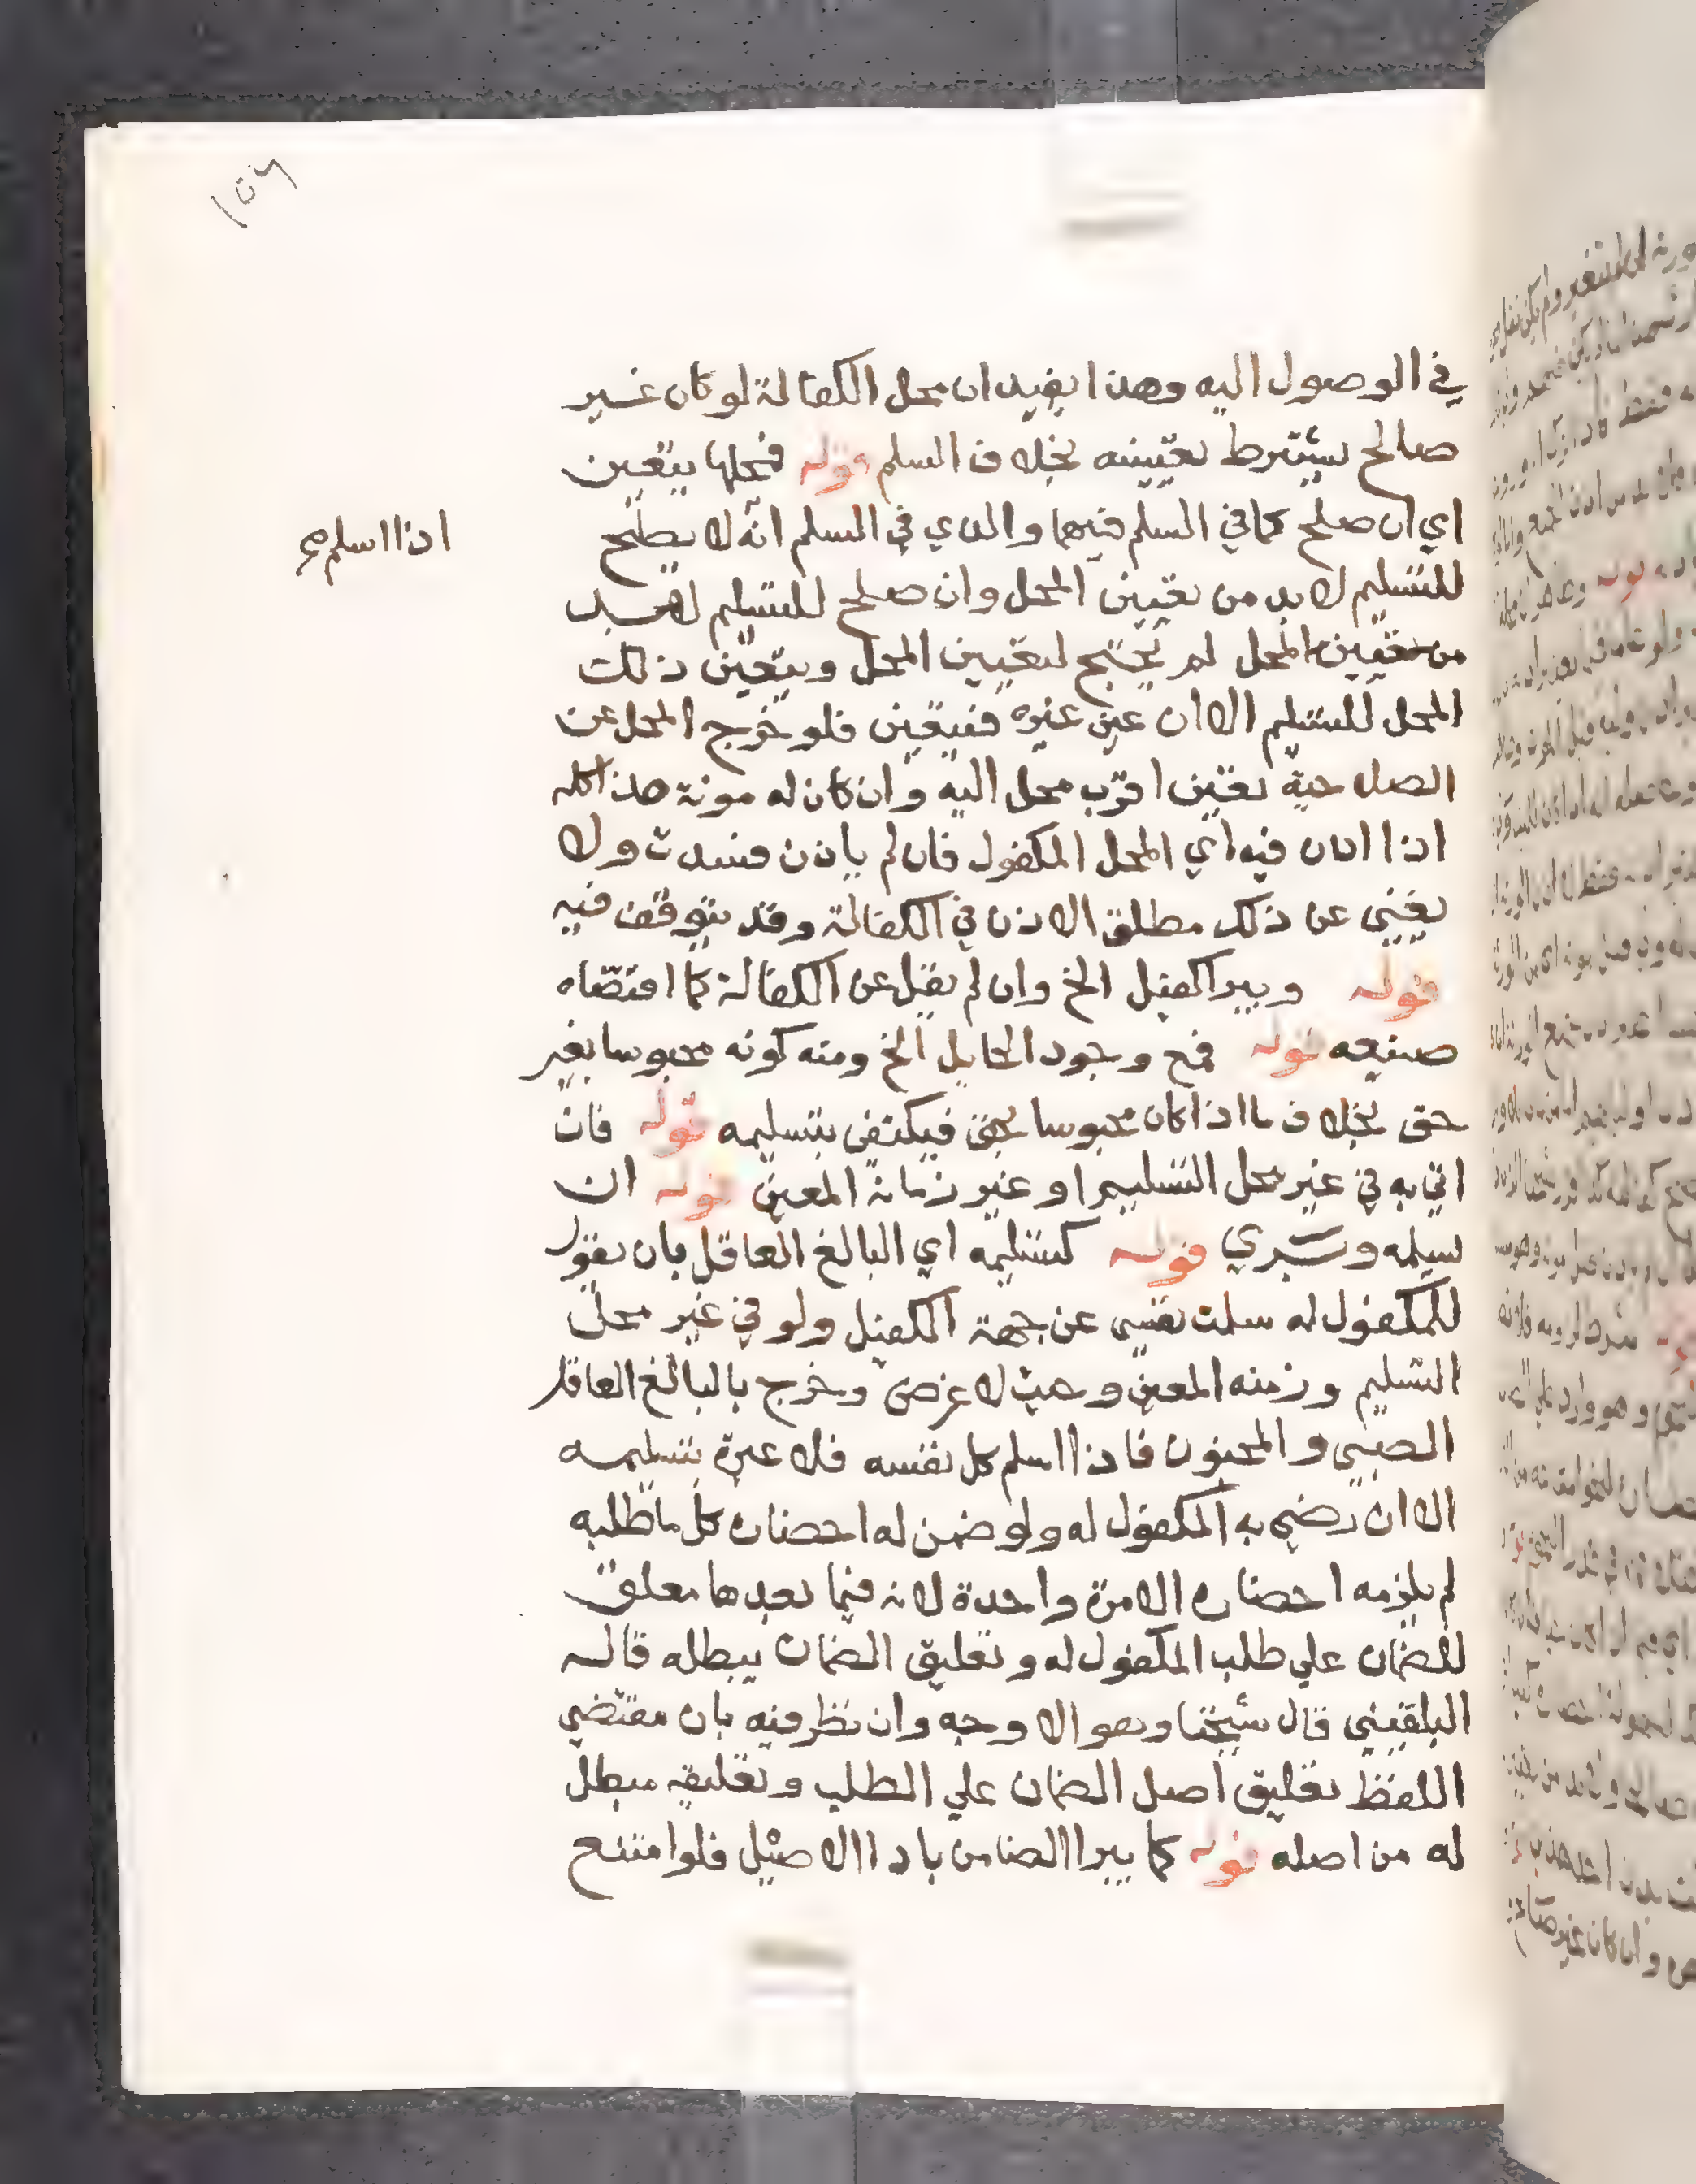 ١٥٦
في الوصول اليه وهذا يفيد ان محل الكفالة لو كان غير
صالح يشترط تعيينه بخلاف السلم قوله فمحلها يتعين
اي ان صلح كما في السلم فيهما والذي في السلم انه لا يصلح
اذا اسلم
للتسليم لا بد من تعيين المحل وان صلح للتسليم
من تعيين المحل لم يحتج لتعيين المحل ويتعين ذلك
المحل للتسليم الا ان عين غيره فيتعين فلو خرج المحل عن
الصلاحية تعين اقرب محل اليه وان كان له مونة هذا كله
اذا اذن فيه اي المحل المكفول فان لم ياذن فسدت ولا
يغني عن ذلك مطلق الاذن في الكفالة وقد يتوقف فيه
قوله ويبرا الكفيل الخ وان لم يقل عن الكفالة كما اقتضاه
صنيعه قوله فمع وجود الحايل الخ ومنه كونه محبوسا بغير
حق بخلاف ما اذا كان محبوسا بحق فيكتفى بتسليمه قوله فان
اتي به في غير محل التسليم او غير زمانه المعين قوله ان
سيلمه وسيري قوله كتسليمه اي البالغ العاقل بان يقول
للمكفول له سلمت نفسي عن جهة الكفيل ولو في غير محل
التسليم وزمنه المعين وحيث لا غرض وخرج بالبالغ العاقل
الصبي والمجنون فاذا اسلم كل نفسه فلا عبرة بتسليمه
الا ان رضي به المكفول له ولو ضمن له احضاره كلما طلبه
لم يلزمه احضاره الا مرة واحدة لانه فيما بعدها معلق
للضمان علي طلب المكفول له وتعليق الضمان يبطله قاله
البلقيني قال شيخنا وهو الاوجه وان نظر فيه بان مقتضي
اللفظ تعليق اصل الضمان علي الطلب وتعليقه مبطل
له من اصله قوله كما يبرا الضامن باداالاصيل فلو امتنع